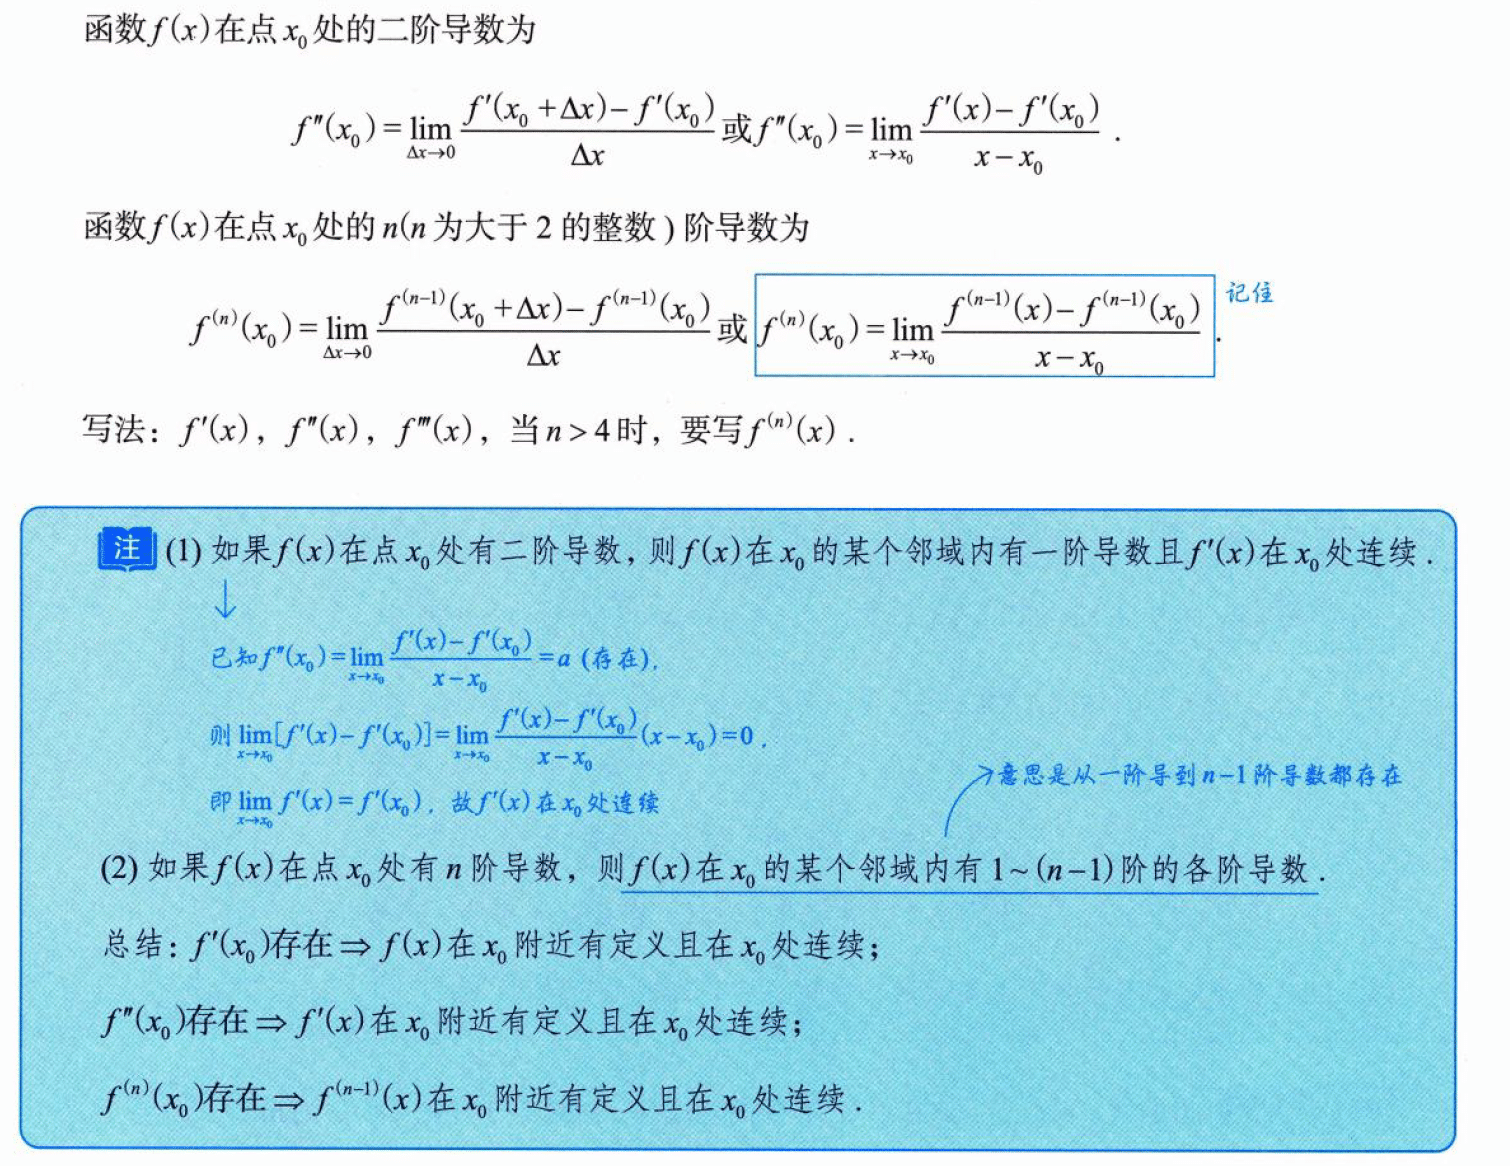 函数f(x)在点x₀处的二阶导数为
f″(x₀)=lim_{Δx→0} (f′(x₀+Δx)−f′(x₀))/Δx 或f″(x₀)=lim_{x→x₀} (f′(x)−f′(x₀))/(x−x₀) .
函数f(x)在点x₀处的n(n为大于2的整数)阶导数为
f⁽ⁿ⁾(x₀)=lim_{Δx→0} (f⁽ⁿ⁻¹⁾(x₀+Δx)−f⁽ⁿ⁻¹⁾(x₀))/Δx 或 f⁽ⁿ⁾(x₀)=lim_{x→x₀} (f⁽ⁿ⁻¹⁾(x)−f⁽ⁿ⁻¹⁾(x₀))/(x−x₀) . 记住
写法：f′(x)，f″(x)，f‴(x)，当n>4时，要写f⁽ⁿ⁾(x) .
注 (1) 如果f(x)在点x₀处有二阶导数，则f(x)在x₀的某个邻域内有一阶导数且f′(x)在x₀处连续 .
已知f″(x₀)=lim_{x→x₀} (f′(x)−f′(x₀))/(x−x₀)=a (存在)，
则 lim_{x→x₀}[f′(x)−f′(x₀)]=lim_{x→x₀} (f′(x)−f′(x₀))/(x−x₀) (x−x₀)=0 ，
意思是从一阶导到n−1阶导数都存在
即 lim_{x→x₀} f′(x)=f′(x₀)，故f′(x)在x₀处连续
(2) 如果f(x)在点x₀处有n阶导数，则f(x)在x₀的某个邻域内有1~(n−1)阶的各阶导数 .
总结：f′(x₀)存在⇒f(x)在x₀附近有定义且在x₀处连续；
f″(x₀)存在⇒f′(x)在x₀附近有定义且在x₀处连续；
f⁽ⁿ⁾(x₀)存在⇒f⁽ⁿ⁻¹⁾(x)在x₀附近有定义且在x₀处连续 .